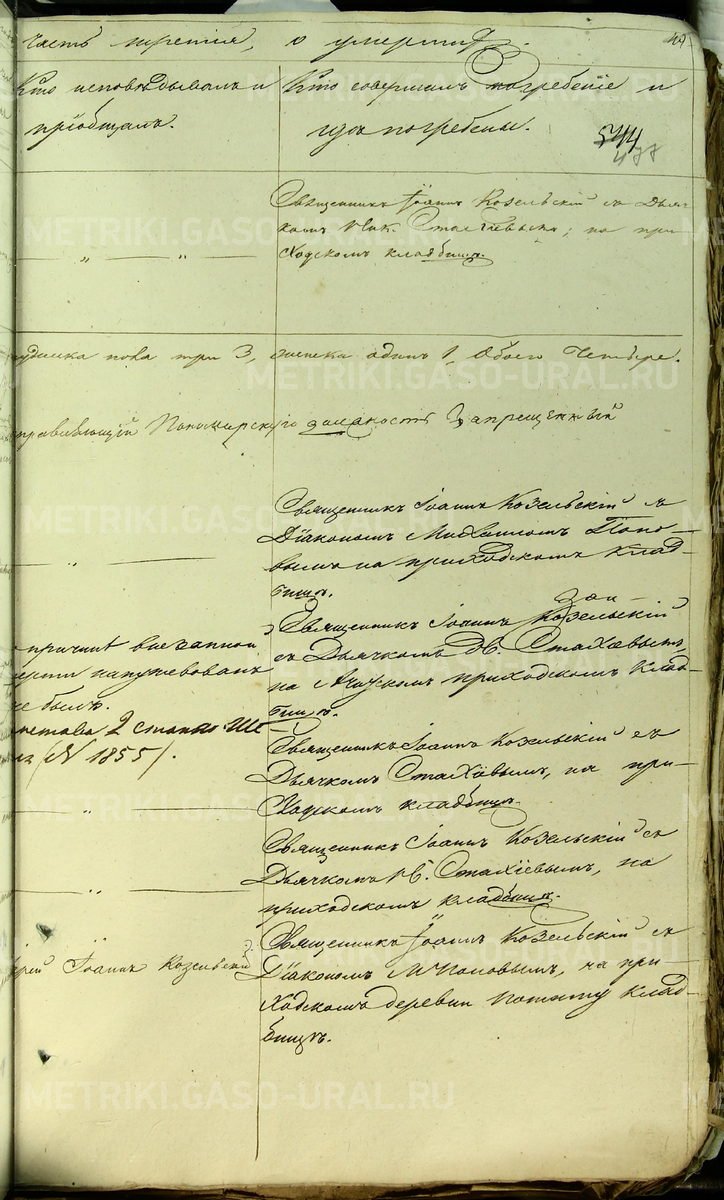 часть третія, о умершихъ.
Кто исповѣдывалъ и
пріобщалъ.
Кто совершилъ погребеніе и
гдѣ погребены.
544
477
Священникъ Іоаннъ Козельскій съ Дьяч
комъ Стахіевымъ; на при
ходскомъ кладбищѣ.
пола три 3, женска одинъ 1, Обоего Четыре.
Пономарскую должность Запрещенный
Священникъ Іоаннъ Козельскій съ
Діакономъ Михаиломъ Попо
вымъ на приходскомъ клад-
бищѣ.
по причинѣ внезапной
смерти напутствованъ
не былъ.
2 стана
(№ 1855).
Священникъ Іоаннъ Козельскій
съ Дьячкомъ Стахіевымъ,
на приходскомъ клад-
бищѣ.
Священникъ Іоаннъ Козельскій съ
Дьячкомъ Стахіевымъ, на при-
ходскомъ кладбищѣ.
Священникъ Іоаннъ Козельскій съ
Дьячкомъ Стахіевымъ, на
приходскомъ кладбищѣ.
Іерей Іоаннъ Козельскій
Священникъ Іоаннъ Козельскій съ
Діакономъ М. Поповымъ, на при-
ходскомъ деревни клад-
бищѣ.
METRIKI.GASO-URAL.RU